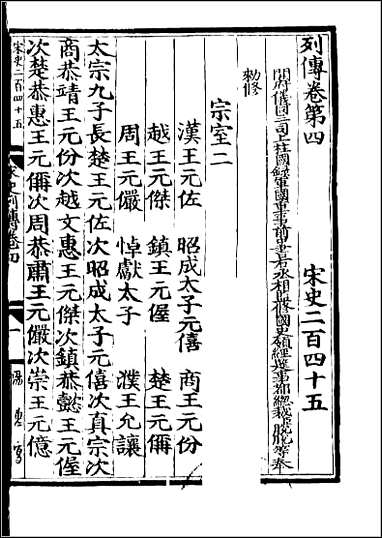 列傳卷第四 宋史二百四十五
開府儀同三司上柱國錄軍國重事前中書右丞相監修國史領經筵事都總裁脫脫等奉
勑修
宗室二
漢王元佐 昭成太子元僖 商王元份
越王元傑 鎮王元偓 楚王元偁
周王元儼 悼獻太子 濮王允讓
太宗九子長楚王元佐次昭成太子元僖次真宗次
商恭靖王元份次越文惠王元傑次鎮恭懿王元偓
次楚恭惠王元偁次周恭肅王元儼次崇王元億
宋史二百四十五
宋史列傳卷四
一